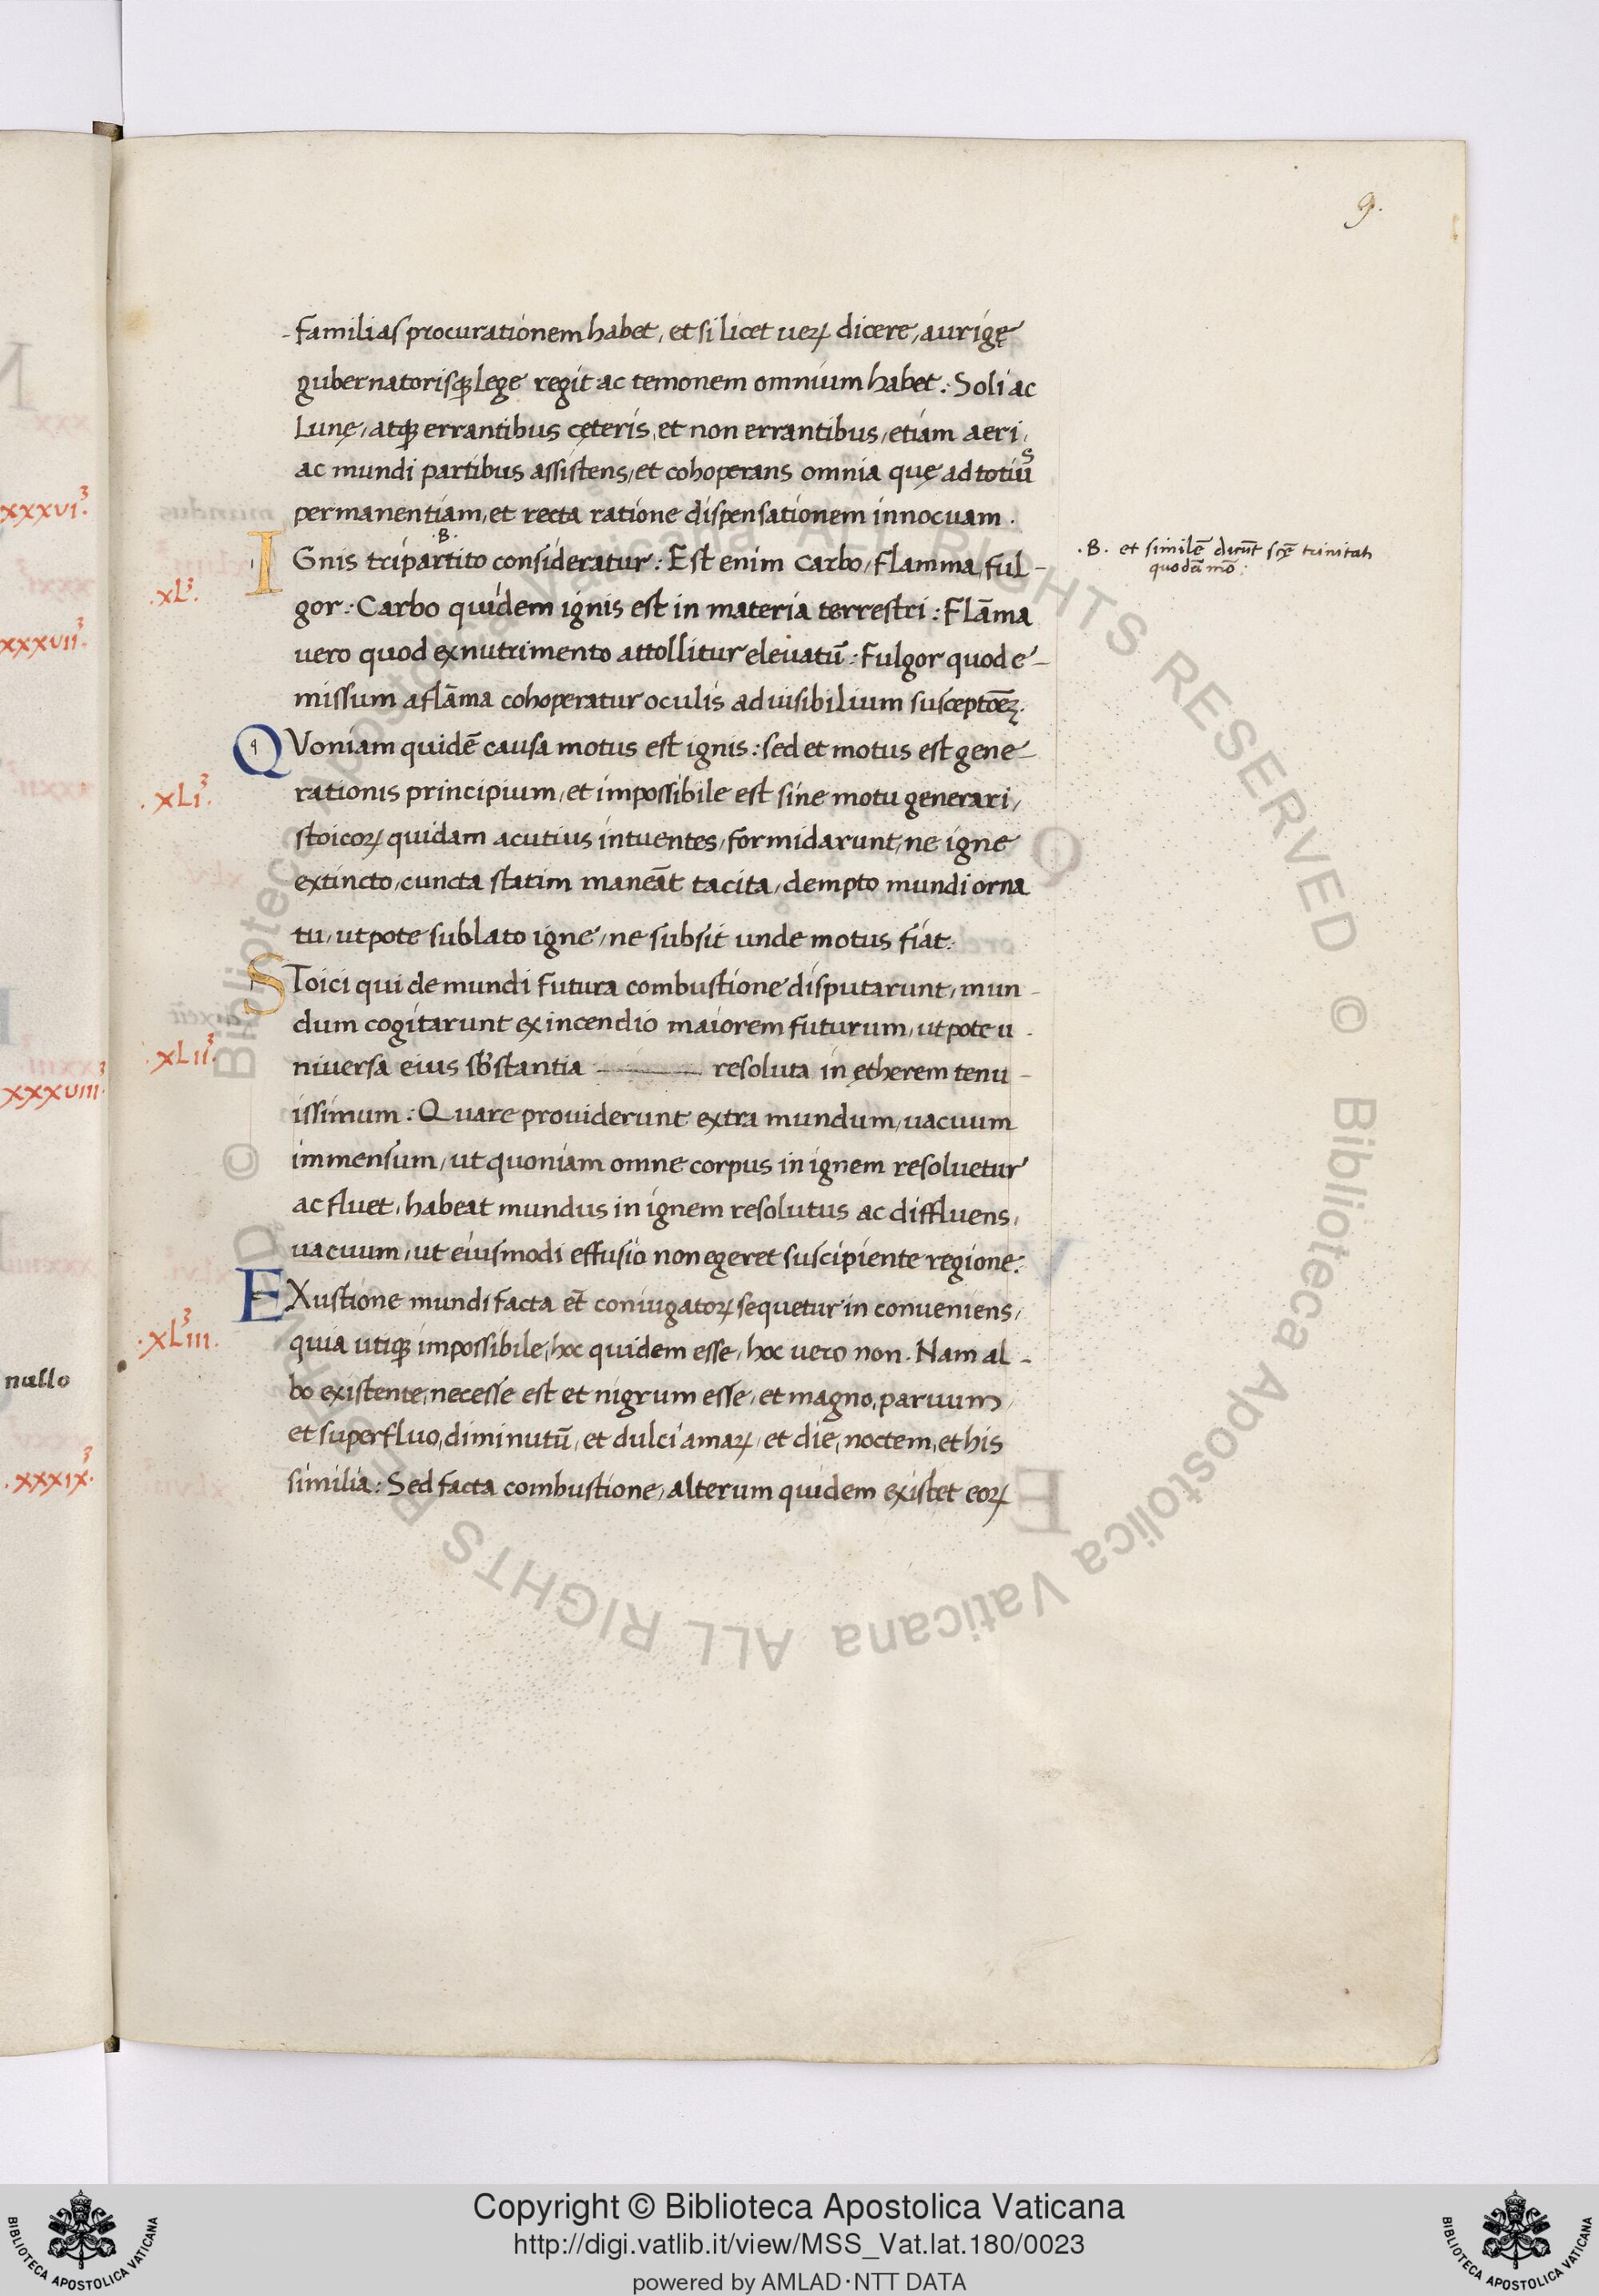 9.
familias procurationem habet, et si licet ueꝝ dicere, aurigę
gubernatorisqꝫ lege regit ac temonem omnium habet. Soli ac
Lunę, atqꝫ errantibus cęteris, et non errantibus, etiam aeri,
ac mundi partibus assistens, et cohoperans omnia quę ad totiuˢ
permanentiam, et recta ratione dispensationem innocuam.
.B.
IGnis tripartito consideratur: Est enim Carbo, flamma, ful-
.B. et similē dicūt scę̄ trinitatis
quodā mō:
.XL³.
gor: Carbo quidem ignis est in materia terrestri: Flāma
vero quod ex nutrimento attollitur eleuatū: Fulgor quod e-
missum a flāma cohoperatur oculis ad uisibilium susceptōeꝫ.
QVoniam quidē causa motus est ignis: sed et motus est gene-
.XLI³.
rationis principium, et impossibile est sine motu generari,
stoicoꝝ quidam acutius intuentes, formidarunt, ne igne
extincto, cuncta statim maneāt tacita, dempto mundi orna
tu, utpote sublato igne, ne subsit unde motus fiat.
SToici qui de mundi futura combustione disputarunt, mun-
dum cogitarunt ex incendio maiorem futurum, utpote u-
.XLII³.
niuersa eius sb̄stantia resoluta in ętherem tenu-
issimum: Quare prouiderunt extra mundum, uacuum
immensum, ut quoniam omne corpus in ignem resoluetur
ac fluet, habeat mundus in ignem resolutus ac diffluens,
uacuum, ut eiusmodi effusio non egeret suscipiente regione.
EXustione mundi facta et̄ coniugatoꝝ sequetur in conueniens,
.XL³III.
quia utiqꝫ impossibile, hoc quidem esse, hoc uero non. Nam al-
bo existente, necesse est et nigrum esse, et magno, paruum,
et superfluo, diminutū, et dulci amaꝝ, et die, noctem, et his
similia: Sed facta combustione, alterum quidem existet eoꝝ
XXXVI³.
XXXVII³.
XXXVIII³.
nullo
.XXXIX³.
© Biblioteca Apostolica Vaticana ALL RIGHTS RESERVED © Biblioteca Apostolica Vaticana ALL RIGHTS RESERVED
Copyright © Biblioteca Apostolica Vaticana
http://digi.vatlib.it/view/MSS_Vat.lat.180/0023
powered by AMLAD·NTT DATA
BIBLIOTECA APOSTOLICA VATICANA
BIBLIOTECA APOSTOLICA VATICANA